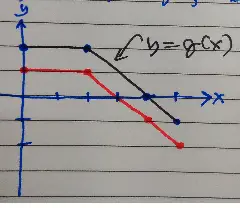 y
y = g(x)
x